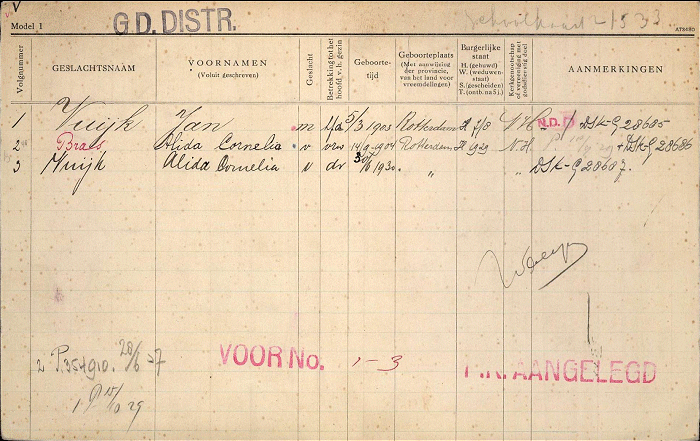 V
G.D. DISTR.
Model I
A75480
Volgnummer
GESLACHTSNAAM
VOORNAMEN
(Voluit geschreven)
Geslacht
Betrekking tot het hoofd v. h. gezin
Geboorte-
tijd
Geboorteplaats
(Met aanwijzing
der provincie,
en van het land voor
vreemdelingen)
Burgerlijke
staat
H. (gehuwd)
W. (weduwen-
staat)
S. (gescheiden)
T. (ontb. na 5 j.)
Kerkgenootschap
of vereeniging met
godsdienstig doel
AANMERKINGEN
1 Wuijk Jan m 5/3 1903 Rotterdam H 7/8 N.H. N.D.D DSK-G 28685
2 Braas Alida Cornelia v vrw 14/9 1904 Rotterdam H 1929 N.H. DSK-G 28686
3 Wuijk Alida Cornelia v dr 30/6 1930 " " DSK-G 28687.
2 P.354910. 28/6-27
VOOR No. 1-3
P.K. AANGELEGD